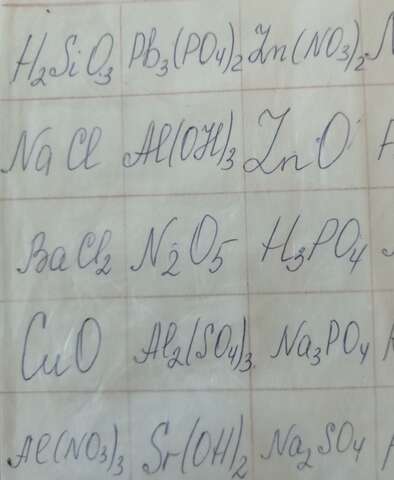 H₂SiO₃ Pb₃(PO₄)₂ Zn(NO₃)₂
NaCl Al(OH)₃ ZnO
BaCl₂ N₂O₅ H₃PO₄
CuO Al₂(SO₄)₃ Na₃PO₄
Al(NO₃)₃ Sr(OH)₂ Na₂SO₄